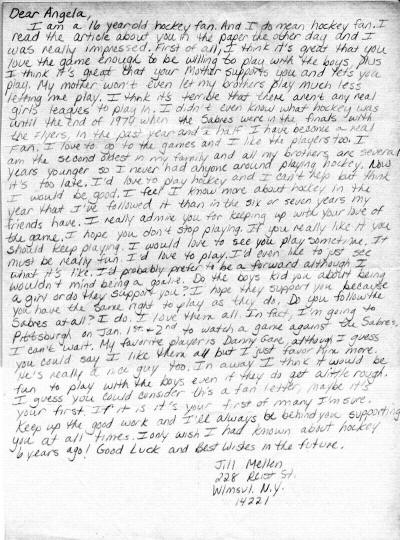 Dear Angela,
I am a 16 year old hockey fan. And I do mean hockey fan. I
read the article about you in the paper the other day and I
was really impressed. First of all, I think it's great that you
love the game enough to be willing to play with the boys, plus
I think it's great that your Mother supports you and lets you
play. My mother won't even let my brothers play much less
letting me play. I think it's terrible that there aren't any real
girls leagues to play in. I didn't even know what hockey was
until the end of 1974 when the Sabres were in the finals with
the Flyers. In the past year and a half I have become a real
Fan. I love to go to the games and I like the players too. I
am the second oldest in my family and all my brothers are several
years younger so I never had anyone around playing hockey. Now
it's too late. I'd love to play hockey and I can't help but think
I would be good. I feel I know more about hockey in the
year that I've followed it than in the six or seven years my
friends have. I really admire you for keeping up with your love of
the game. I hope you don't stop playing. If you really like it you
should keep playing. I would love to see you play sometime. It
must be really fun. I'd love to play. I'd even like to just see
what it's like. I'd probably prefer to be a forward although I
wouldn't mind being a goalie. Do the boys kid you about being
a girl or do they support you? I hope they support you because
you have the same right to play as they do. Do you follow the
Sabres at all? I do. I love them all. In fact, I'm going to
Pittsburgh on Jan. 1st & 2nd to watch a game against the Sabres.
I can't wait. My favorite player is Danny Gare, although I guess
you could say I like them all but I just favor him more.
He's really a nice guy too. In a way I think it would be
fun to play with the boys even if they do get a little rough.
I guess you could consider this a fan letter, maybe it's
your first. If it is it's your first of many I'm sure.
Keep up the good work and I'll always be behind you supporting
you at all times. I only wish I had known about hockey
6 years ago! Good Luck and Best Wishes in the future.
Jill Mellen
228 Reist St.
Wlmsvl. N.Y.
14221